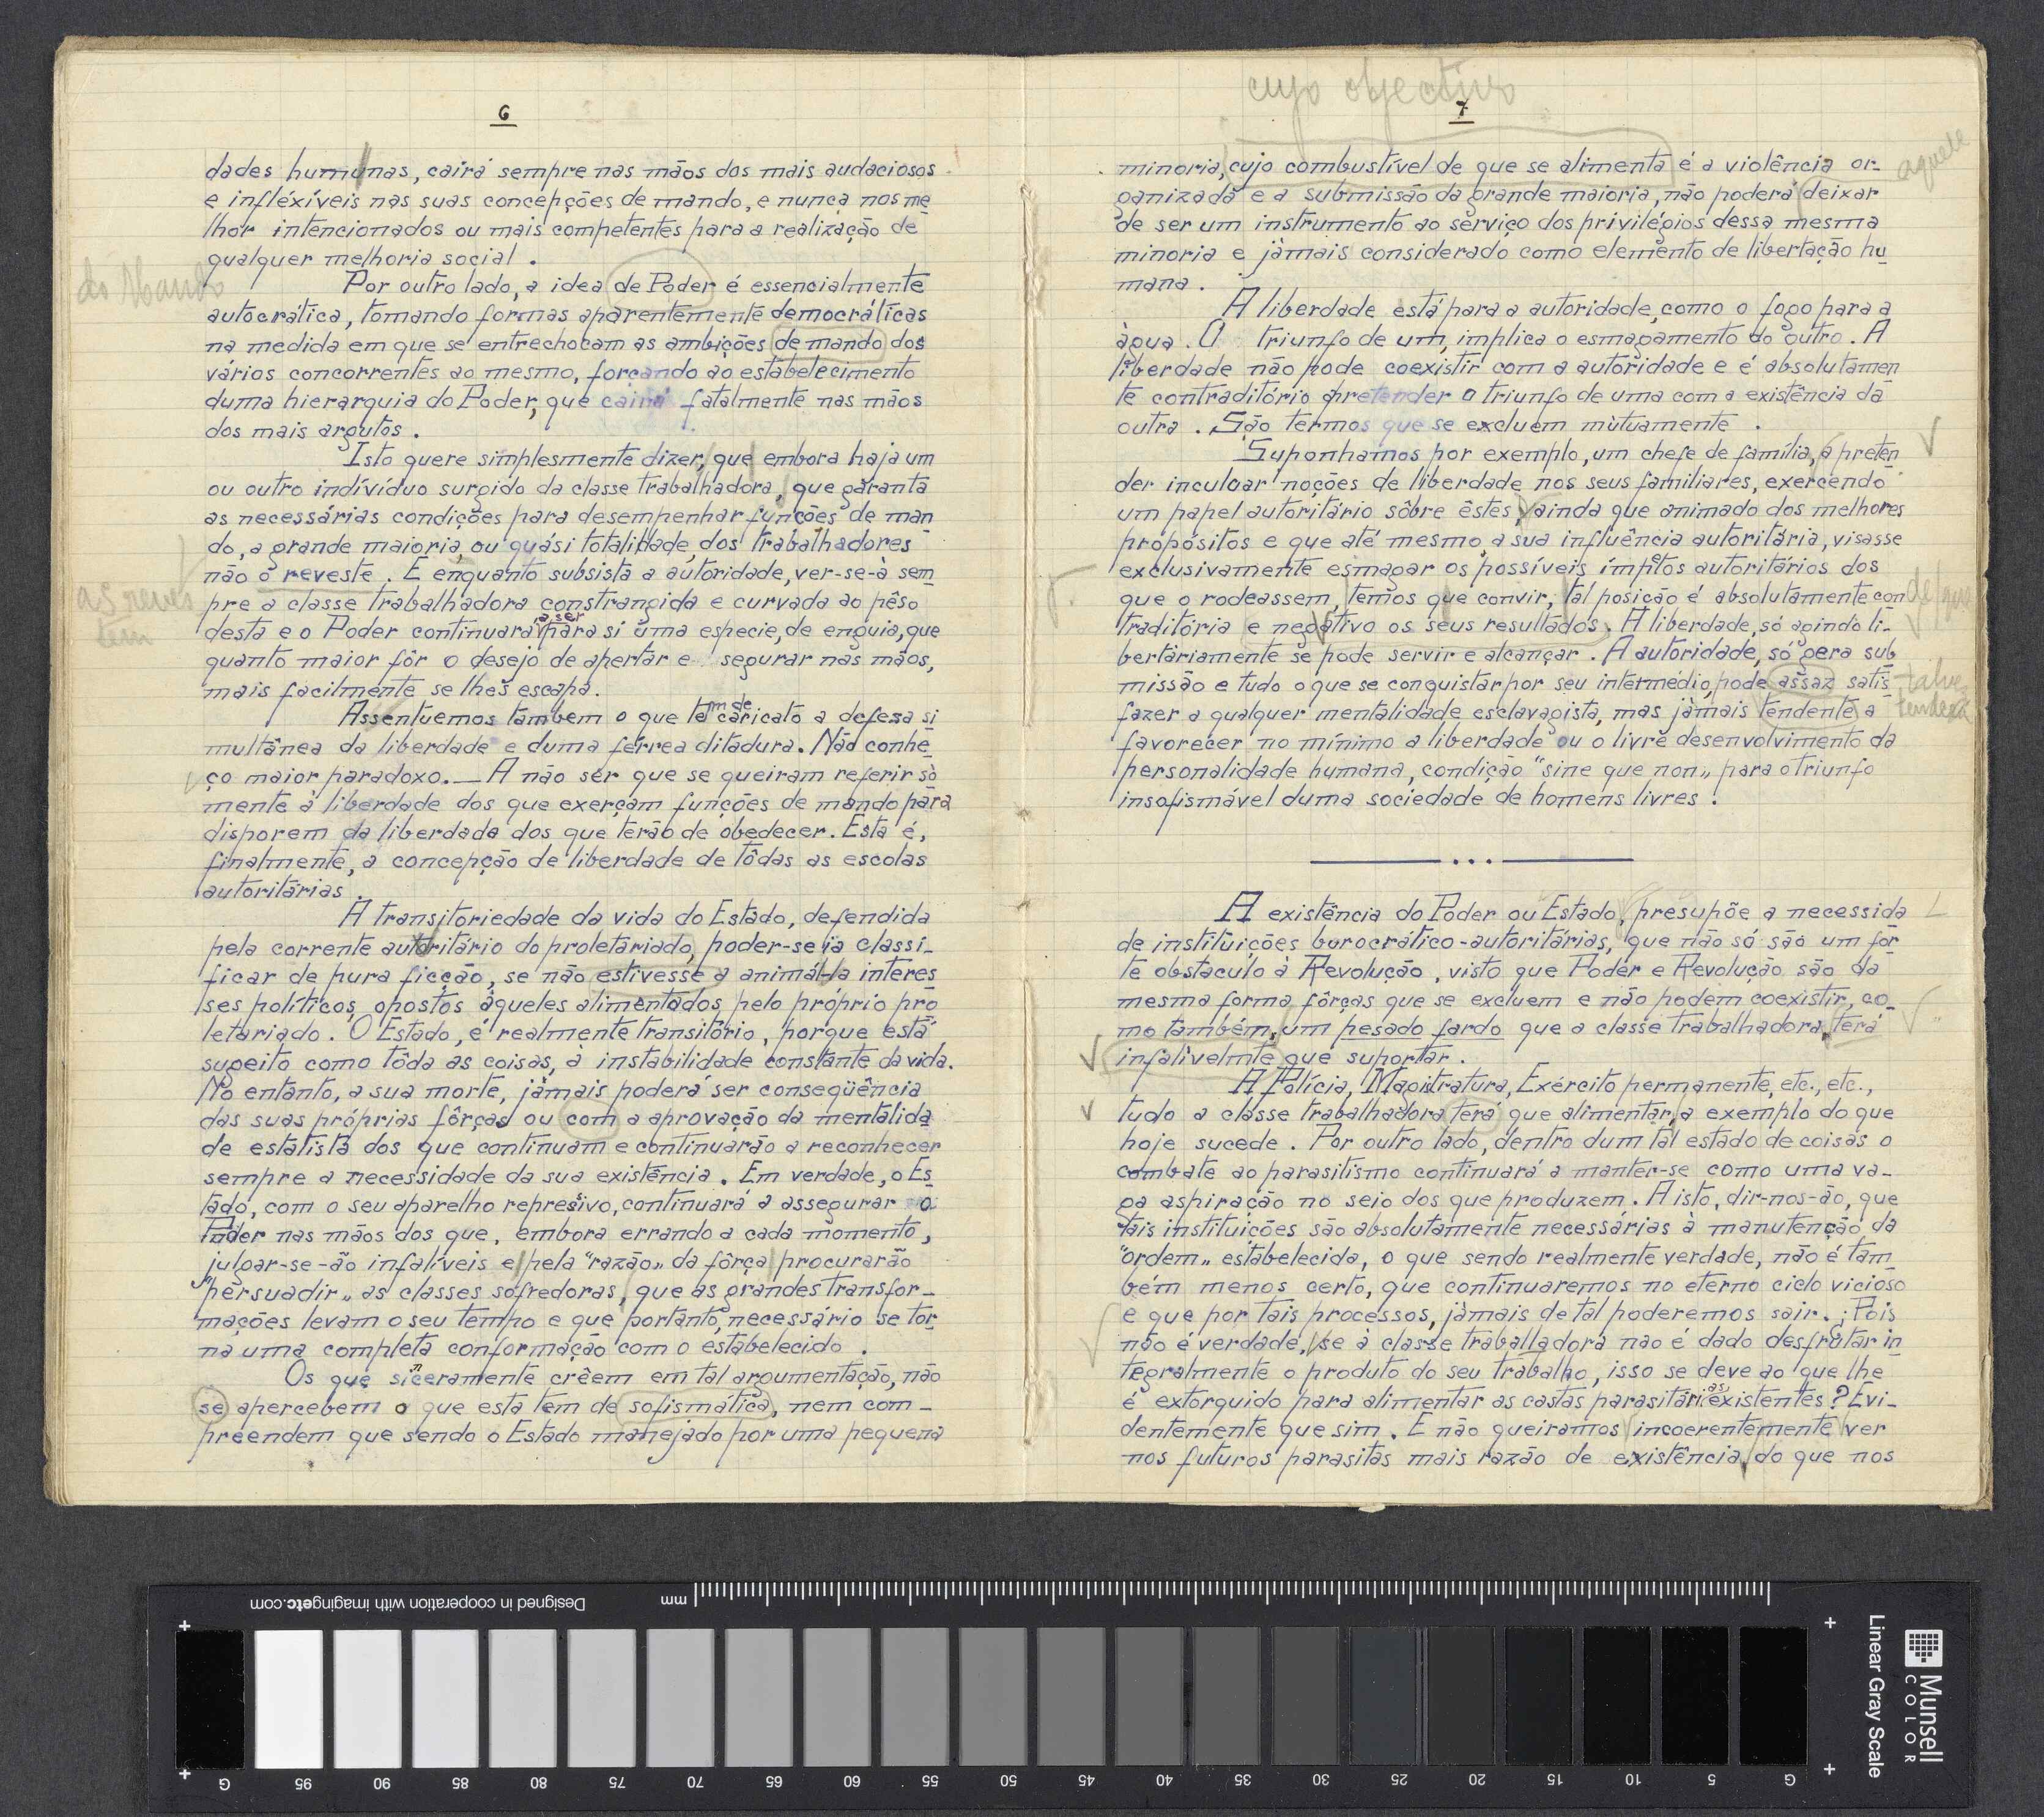 6
dades humanas, cairá sempre nas mãos dos mais audaciosos
e infléxíveis nas suas concepções de mando, e nunca nos me
lhor intencionados ou mais competentes para a realização de
qualquer melhoria social .
do Mando
Por outro lado, a idea de Poder é essencialmente
autocrática, tomando formas aparentemente democráticas
na medida em que se entrechocam as ambições de mando dos
vários concorrentes ao mesmo, forçando ao estabelecimento
duma hierarquia do Poder, que cairá fatalmente nas mãos
dos mais argutos .
Isto quere simplesmente dizer, que embora haja um
ou outro indivíduo surgido da classe trabalhadora, que garanta
as necessárias condições para desempenhar funções de man
do, a grande maioria, ou quási totalidade, dos trabalhadores
não o reveste . E enquanto subsista a autoridade, ver-se-à sem
as reves
tem
pre a classe trabalhadora constrangida e curvada ao pêso
desta e o Poder continuará a ser para si uma especie, de enguia, que
quanto maior fôr o desejo de apertar e segurar nas mãos,
mais facilmente se lhes escapa.
Assentuemos tambem o que tem de caricato a defesa si
multânea da liberdade e duma férrea ditadura. Não conhe
ço maior paradoxo. — A não ser que se queiram referir sò
mente à liberdade dos que exerçam funções de mando para
disporem da liberdada dos que terão de obedecer. Esta é,
finalmente, a concepção de liberdade de tôdas as escolas
autoritárias .
A transitoriedade da vida do Estado, defendida
pela corrente autoritário do proletariado, poder-se ia classi-
ficar de pura ficção, se não estivesse a animá-la interes
ses políticos, opostos àqueles alimentados pelo próprio pro
letariado. O Estado, é realmente transitório, porque está
sugeito como tôda as coisas, à instabilidade constante da vida.
No entanto, a sua morte, jàmais poderá ser conseqüência
das suas próprias fôrças ou com a aprovação da mentalida
de estatista dos que continuam e continuarão a reconhecer
sempre a necessidade da sua existência . Em verdade, o Es
tado, com o seu aparelho represivo, continuará a assegurar o
Poder nas mãos dos que, embora errando a cada momento,
julgar-se-ão infalíveis e pela “razão„ da fôrça procurarão
“persuadir„ as classes sofredoras, que as grandes transfor-
mações levam o seu tempo e que portanto, necessário se tor
na uma completa conformação com o estabelecido .
Os que sinceramente crêem em tal argumentação, não
se apercebem o que esta tem de sofismática, nem com-
preendem que sendo o Estado manejado por uma pequena
cujo objectivo
7
minoria, cujo combustível de que se alimenta é a violência or-
aquele
ganizada e a submissão da grande maioria, não poderá deixar
de ser um instrumento ao serviço dos privilégios dessa mesma
minoria e jàmais considerado como elemento de libertação hu
mana .
A liberdade está para a autoridade, como o fogo para a
àgua . O triunfo de um, implica o esmagamento do outro . A
liberdade não pode coexistir com a autoridade e é absolutamen
te contraditório pretender o triunfo de uma com a existência da
outra . São termos que se excluem mùtuamente .
Suponhamos por exemplo, um chefe de família, a preten
der inculcar noções de liberdade nos seus familiares, exercendo
um papel autoritário sôbre êstes, ainda que animado dos melhores
própósitos e que até mesmo, a sua influência autoritária, visasse
exclusivamente esmagar os possíveis ímpetos autoritários dos
que o rodeassem, temos que convir, tal posição é absolutamente con
traditória e negativo os seus resultados. A liberdade, só agindo li-
bertàriamente se pode servir e alcançar . A autoridade, só gera sub
missão e tudo o que se conquistar por seu intermédio, pode assaz satis
talvez
fazer a qualquer mentalidade esclavagista, mas jàmais tendente a
favorecer no mínimo a liberdade ou o livre desenvolvimento da
personalidade humana, condição “sine que non„ para o triunfo
insofismável duma sociedade de homens livres !
A existência do Poder ou Estado, presupõe a necessida
de instituições burocrático-autoritárias, que não só são um fôr
te obstaculo à Revolução, visto que Poder e Revolução são da
mesma forma fôrças que se excluem e não podem coexistir, co-
mo também, um pesado fardo que a classe trabalhadora, terá
infalivelmte que suportar .
A Polícia, Magistratura, Exército permanente, etc., etc.,
tudo a classe trabalhadora terá que alimentar, a exemplo do que
hoje sucede . Por outro lado, dentro dum tal estado de coisas o
combate ao parasitismo continuará a manter-se como uma va-
ga aspiração no seio dos que produzem. A isto, dir-nos-ão, que
tais instituições são absolutamente necessárias à manutenção da
“ordem„ estabelecida, o que sendo realmente verdade, não é tam
bém menos certo, que continuaremos no eterno ciclo vicioso
e que por tais processos, jàmais de tal poderemos sair. ¡Pois
não é verdade, se à classe traballadora nao é dado desfrutar in
tegralmente o produto do seu trabalho, isso se deve ao que lhe
é extorquido para alimentar as castas parasitárias existentes ? Evi-
dentemente que sim . E não queiramos incoerentemente ver
nos futuros parasitas mais razão de existência, do que nos
Designed in cooperation with imagingetc.com
mm
G 95 90 85 80 75 70 65 60 55 50 45 40 35 30 25 20 15 10 5 G
Munsell
COLOR
Linear Gray Scale